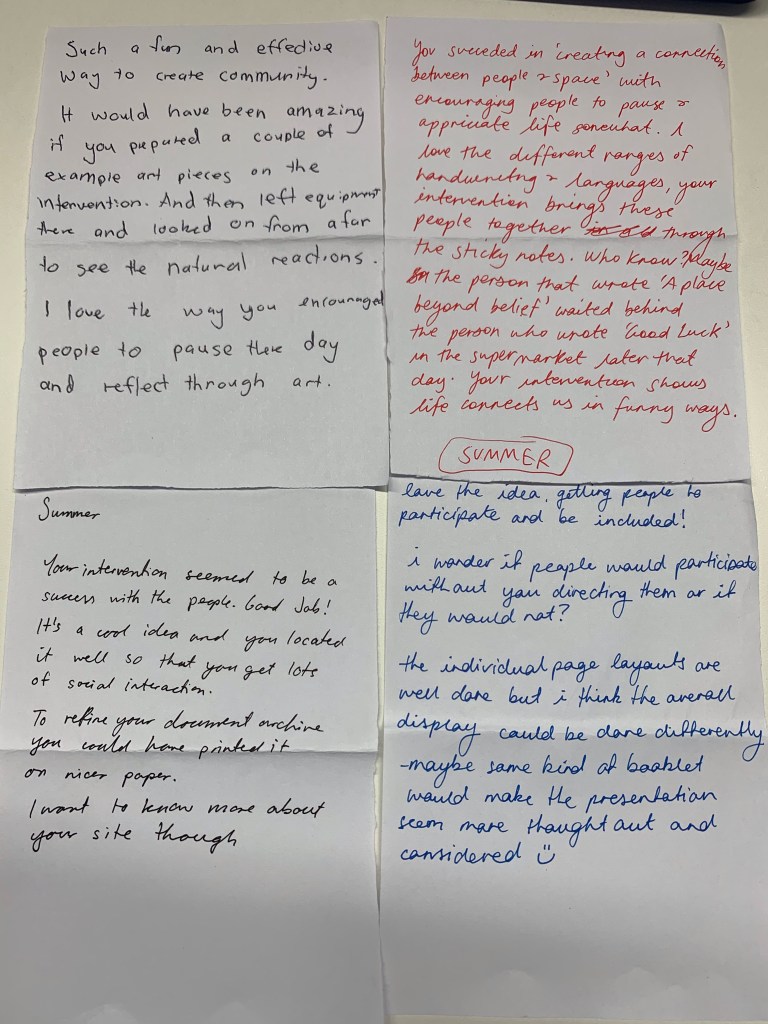 Such a fun and effective
way to create community.
It would have been amazing
if you prepared a couple of
example art pieces on the
intervention. And then left equipment
there and looked on from afar
to see the natural reactions.
I love the way you encouraged
people to pause there day
and reflect through art.
You succeded in 'creating a connection
between people & space' with
encouraging people to pause &
appriciate life somewhat. I
love the different ranges of
handwriting & languages, your
intervention brings these
people together through
the sticky notes. Who know? Maybe
the person that wrote 'A place
beyond belief' waited behind
the person who wrote 'Good Luck'
in the supermarket later that
day. Your intervention shows
life connects us in funny ways.
SUMMER
Summer
Your intervention seemed to be a
success with the people. Good Job!
It's a cool idea and you located
it well so that you get lots
of social interaction.
To refine your document archive
you could have printed it
on nicer paper.
I want to know more about
your site though
love the idea, getting people to
participate and be included!
i wonder if people would participate
without you directing them or if
they would not?
the individual page layouts are
well done but i think the overall
display could be done differently
-maybe some kind of booklet
would make the presentation
seem more thought out and
considered :)